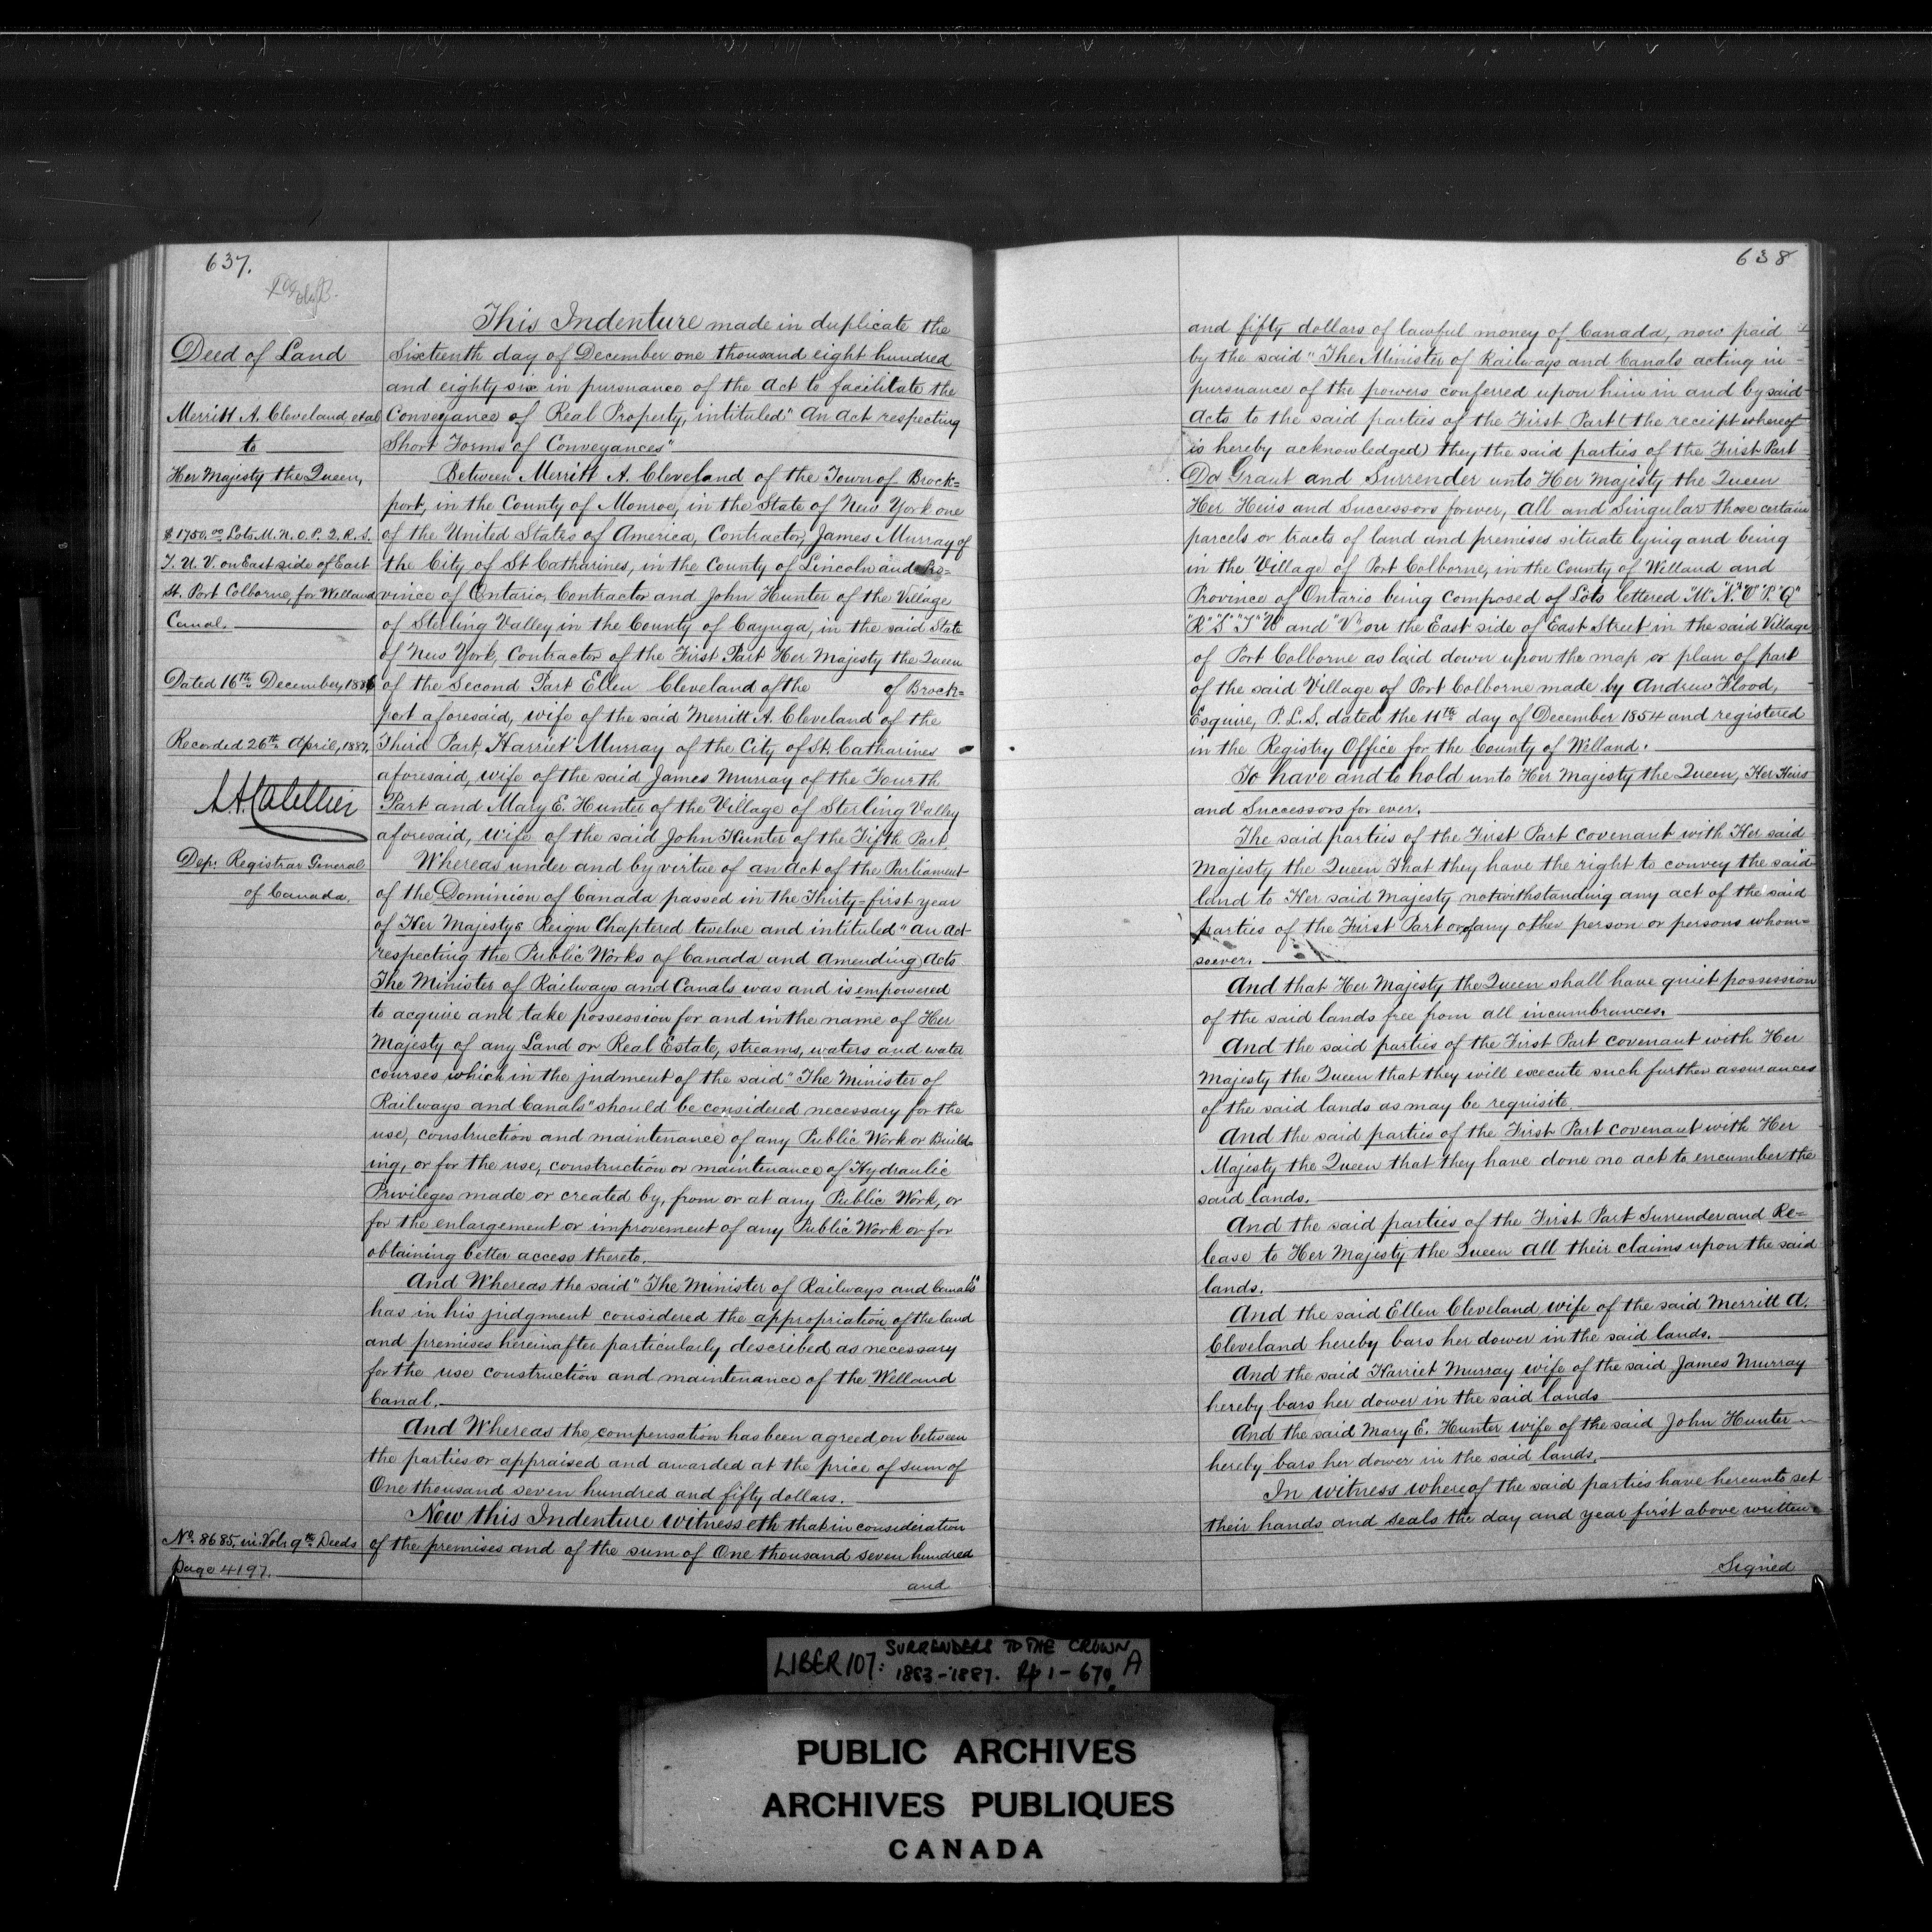 637.
Deed of Land
Merritt A. Cleveland et al
to
Her Majesty the Queen,
$1750.00 Lots M. N. O. P. Q. R. S.
T. U. V. on East side of East
St. Port Colborne, for Welland
Canal.
Dated 16th December, 1886
Recorded 26th April, 1887,
Dep. Registrar General
of Canada.
No. 8685. in Vol. 9th Deeds
page 4197.
This Indenture made in duplicate the
Sixteenth day of December one thousand eight hundred
and eighty six in pursuance of the Act to facilitate the
Conveyance of Real Property, intituled "An Act respecting
Short Forms of Conveyances"
Between Merritt A. Cleveland of the Town of Brock=
port, in the County of Monroe, in the State of New York one
of the United States of America, Contractor, James Murray of
the City of St Catharines, in the County of Lincoln and Pro=
vince of Ontario, Contractor and John Hunter of the Village
of Sterling Valley in the County of Cayuga, in the said State
of New York, Contractor of the First Part Her Majesty the Queen
of the Second Part Ellen Cleveland of the of Brock=
port aforesaid, wife of the said Merritt A. Cleveland of the
Third Part, Harriet Murray of the City of St. Catharines
aforesaid, wife of the said James Murray of the Fourth
Part and Mary E. Hunter of the Village of Sterling Valley
aforesaid, wife of the said John Hunter of the Fifth Part.
Whereas under and by virtue of an Act of the Parliament
of the Dominion of Canada passed in the Thirty=first year
of Her Majestys Reign Chaptered twelve and intituled "An Act
respecting the Public Works of Canada and Amending Acts
The Minister of Railways and Canals was and is empowered
to acquire and take possession for and in the name of Her
Majesty of any Land or Real Estate, streams, waters and water
courses which in the judment of the said "The Minister of
Railways and Canals" should be considered necessary for the
use, construction and maintenance of any Public Work or Build=
ing, or for the use, construction or maintenance of Hydraulic
Privileges made or created by, from or at any Public Work, or
for the enlargement or improvement of any Public Work or for
obtaining better access thereto.
And Whereas the said "The Minister of Railways and Canals"
has in his judgment considered the appropriation of the land
and premises hereinafter particularly described as necessary
for the use construction and maintenance of the Welland
Canal.
And Whereas the compensation has been agreed on between
the parties or appraised and awarded at the price of sum of
One thousand seven hundred and fifty dollars.
Now this Indenture witnesseth that in consideration
of the premises and of the sum of One thousand seven hundred
and
638
and fifty dollars of lawful money of Canada, now paid
by the said "The Minister of Railways and Canals acting in
pursuance of the powers conferred upon him in and by said
Acts to the said parties of the First Part (the receipt whereof
is hereby acknowledged) they the said parties of the First Part
Do Grant and Surrender unto Her Majesty the Queen
Her Heirs and Successors forever, All and Singular those certain
parcels or tracts of land and premises situate lying and being
in the Village of Port Colborne, in the County of Welland and
Province of Ontario being composed of Lots lettered "M" "N" "O" "P" "Q"
"R" "S" "T" "U" and "V" on the East side of East Street in the said Village
of Port Colborne as laid down upon the map or plan of part
of the said Village of Port Colborne made by Andrew Flood,
Esquire, P. L. S. dated the 11th day of December 1854 and registered
in the Registry Office for the County of Welland.
To have and to hold unto Her Majesty the Queen, Her Heirs
and Successors for ever.
The said parties of the First Part covenant with Her said
Majesty the Queen That they have the right to convey the said
land to Her said Majesty notwithstanding any act of the said
parties of the First Part or of any other person or persons whom=
soever.
And that Her Majesty the Queen shall have quiet possession
of the said lands free from all incumbrances.
And the said parties of the First Part covenant with Her
Majesty the Queen that they will execute such further assurances
of the said lands as may be requisite.
And the said parties of the First Part covenant with Her
Majesty the Queen that they have done no act to encumber the
said lands.
And the said parties of the First Part Surrender and Re=
lease to Her Majesty the Queen All their claims upon the said
lands.
And the said Ellen Cleveland wife of the said Merritt A.
Cleveland hereby bars her dower in the said lands.
And the said Harriet Murray wife of the said James Murray
hereby bars her dower in the said lands
And the said Mary E. Hunter wife of the said John Hunter
hereby bars her dower in the said lands.
In witness whereof the said parties have hereunto set
their hands and seals the day and year first above written.
Signed
LIBER 107: SURRENDERS TO THE CROWN
1883-1887. pp 1-670. A
PUBLIC ARCHIVES
ARCHIVES PUBLIQUES
CANADA